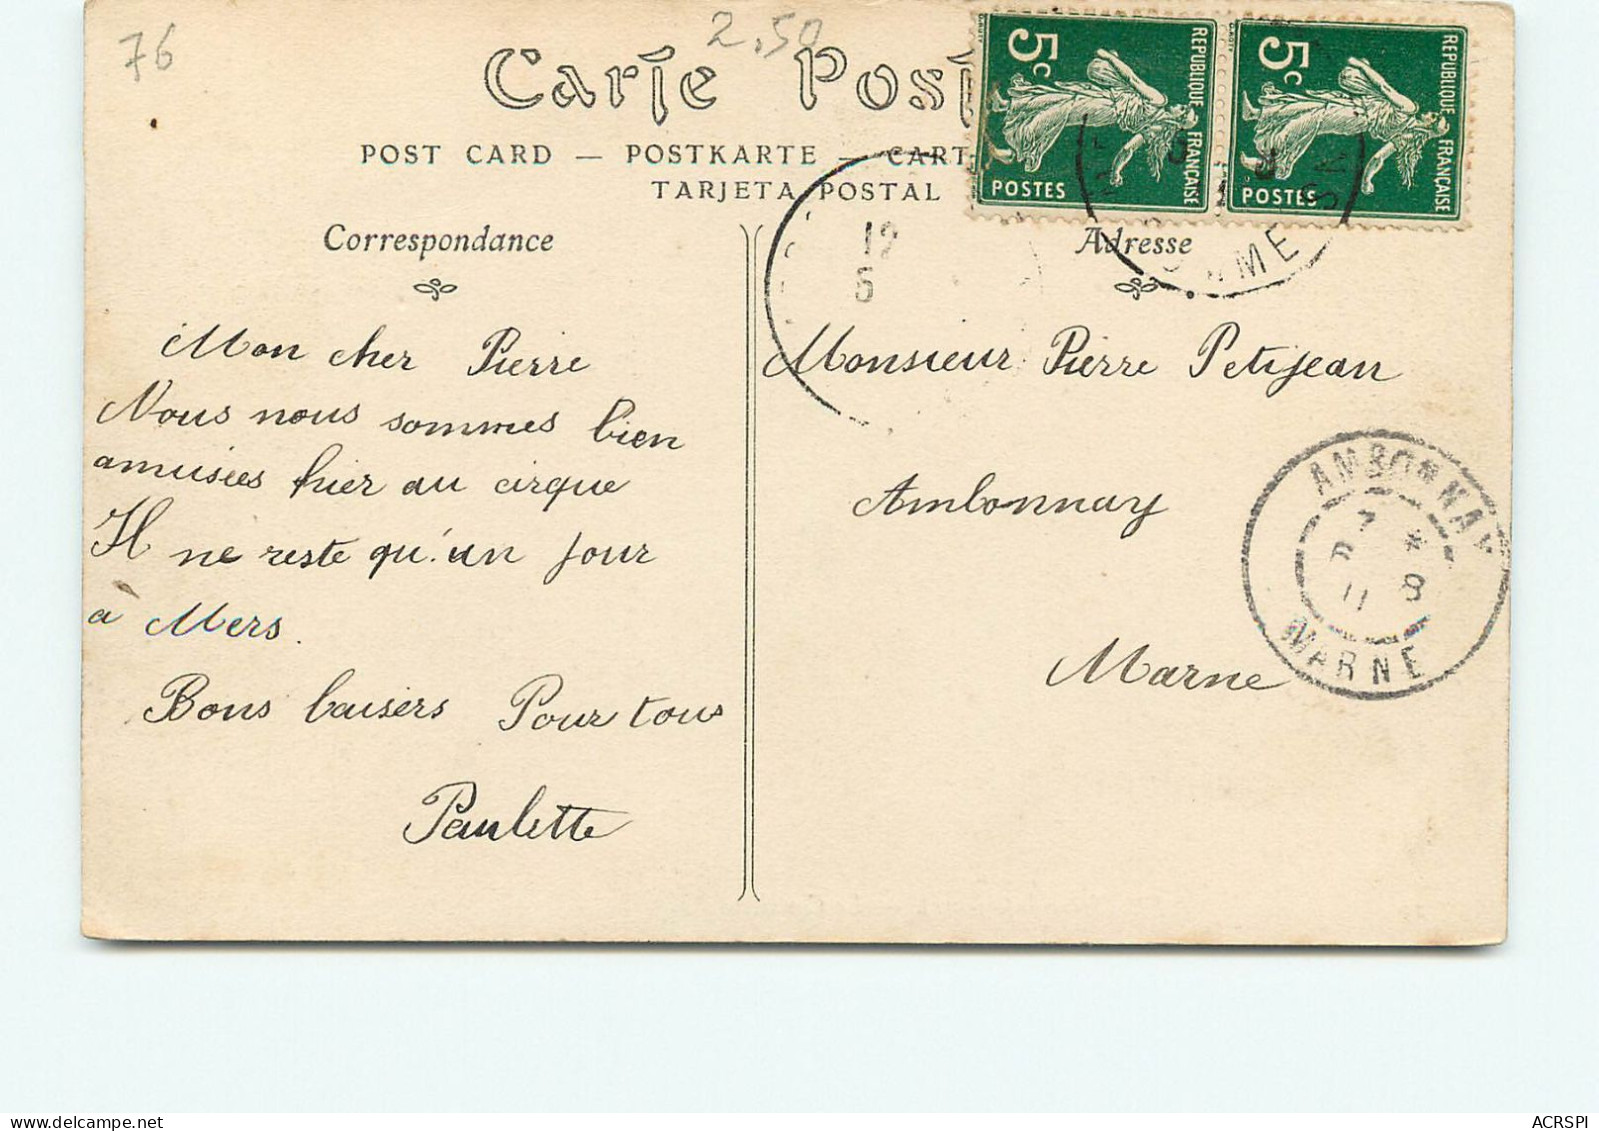 76
2,50
Carte Post
POST CARD — POSTKARTE — CART
TARJETA POSTAL
5c
REPUBLIQUE FRANÇAISE
POSTES
5c
REPUBLIQUE FRANÇAISE
POSTES
Correspondance
Adresse
12
5
Mon cher Pierre
Nous nous sommes bien
amusées hier au cirque
Il ne reste qu'un jour
à Mers.
Bons baisers Pour tous
Paulette
Monsieur Pierre Petijean
Ambonnay
Marne
AMBONNAY
7 *
8
11
MARNE
ACRSPI